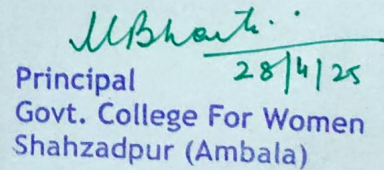 28/4/25
Principal
Govt. College For Women
Shahzadpur (Ambala)